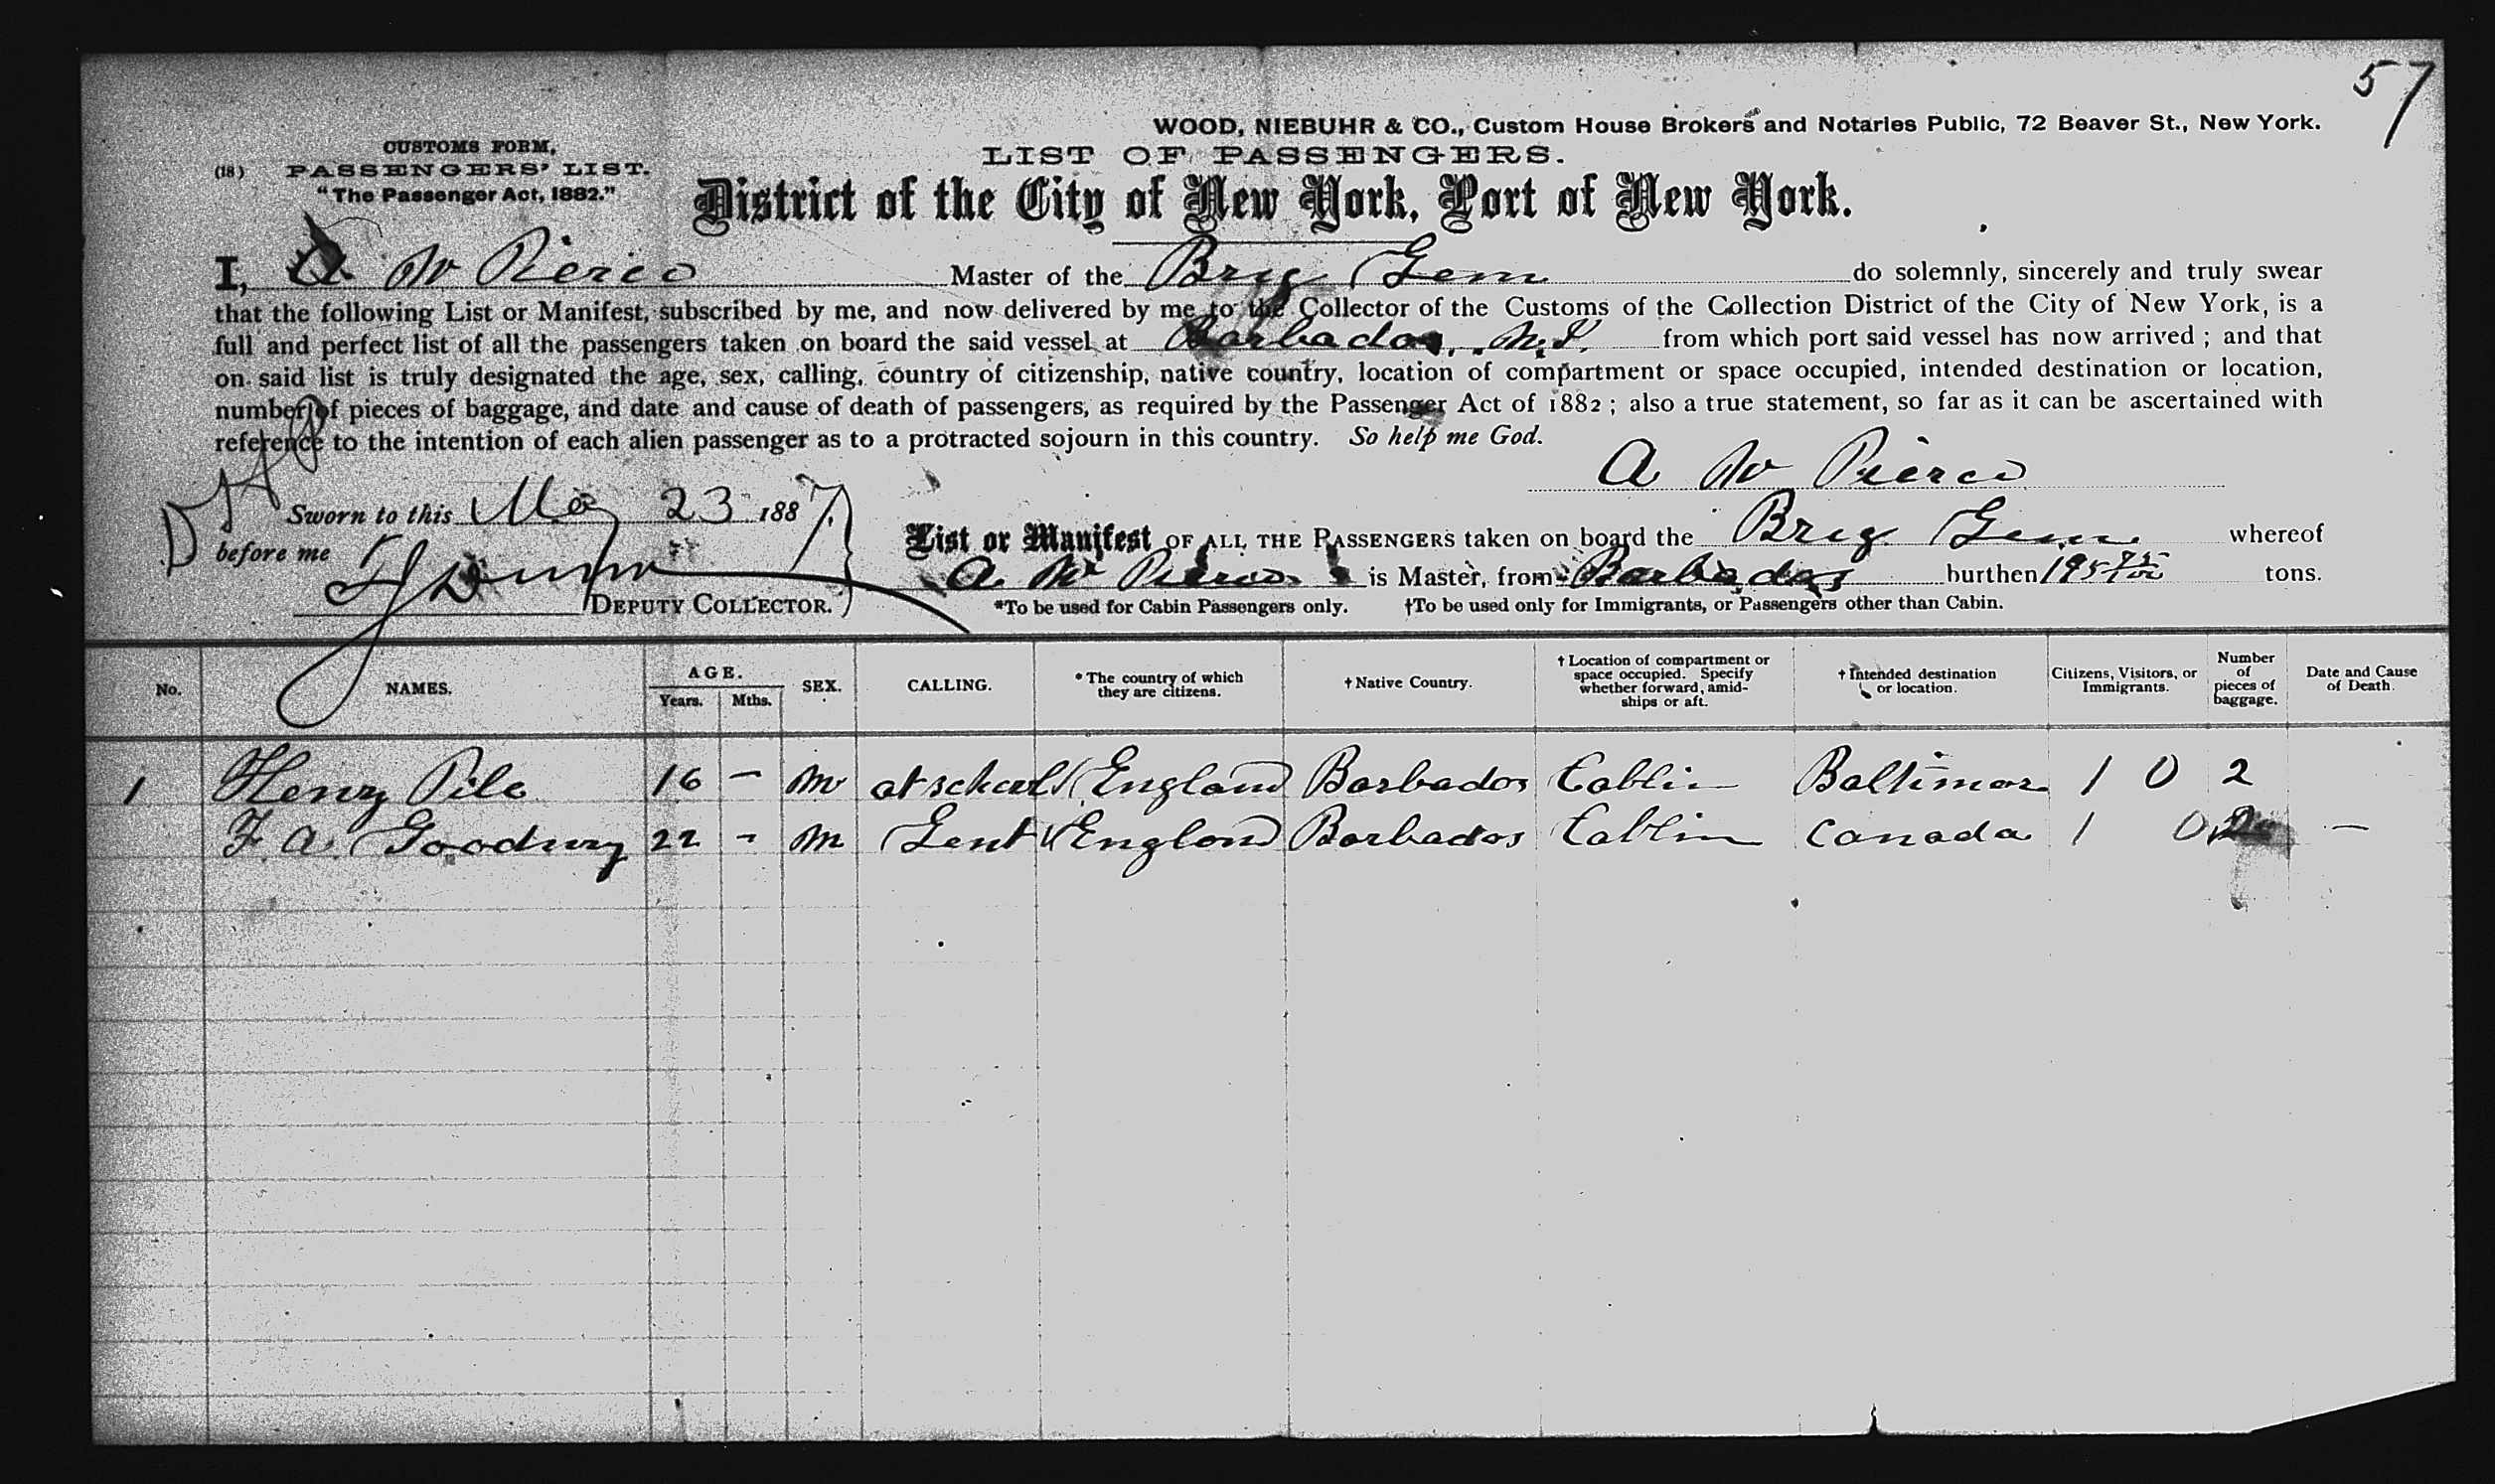 57
WOOD, NIEBUHR & CO., Custom House Brokers and Notaries Public, 72 Beaver St., New York.
CUSTOMS FORM,
LIST OF PASSENGERS.
(18) PASSENGERS' LIST.
"The Passenger Act, 1882."
District of the City of New York, Port of New York.
I, A W Pierce Master of the Brig Gem do solemnly, sincerely and truly swear
that the following List or Manifest, subscribed by me, and now delivered by me to the Collector of the Customs of the Collection District of the City of New York, is a
full and perfect list of all the passengers taken on board the said vessel at Barbados, W.I. from which port said vessel has now arrived ; and that
on said list is truly designated the age, sex, calling, country of citizenship, native country, location of compartment or space occupied, intended destination or location,
number of pieces of baggage, and date and cause of death of passengers, as required by the Passenger Act of 1882 ; also a true statement, so far as it can be ascertained with
reference to the intention of each alien passenger as to a protracted sojourn in this country. So help me God.
A W Pierce
Sworn to this May 23 1887.
before me
DEPUTY COLLECTOR.
List or Manifest OF ALL THE PASSENGERS taken on board the Brig Gem whereof
A. W Pierce is Master, from Barbados burthen 195 tons.
*To be used for Cabin Passengers only. †To be used only for Immigrants, or Passengers other than Cabin.
No. NAMES. AGE. Years. Mths. SEX. CALLING. * The country of which they are citizens. † Native Country. † Location of compartment or space occupied. Specify whether forward, amidships or aft. † Intended destination or location. Citizens, Visitors, or Immigrants. Number of pieces of baggage. Date and Cause of Death.
1 Henry Pile 16 – M at school England Barbados Cabbin Baltimore 1 0 2
F. A. Gooding 22 - M Gent England Barbados Cabbin Canada 1 0 2 —